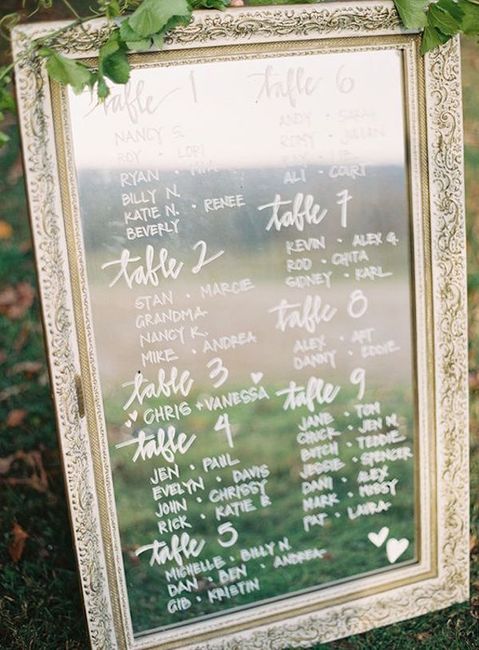 table 1
NANCY S.
ROY · LORI
RYAN ·
BILLY N.
KATIE N. · RENEE
BEVERLY
table 2
STAN · MARCIE
GRANDMA
NANCY K.
MIKE · ANDREA
table 3
CHRIS + VANESSA
table 4
JEN · PAUL
EVELYN · DAVIS
JOHN · CHRISSY
RICK · KATIE B
table 5
MICHELLE · BILLY N.
DAN · BEN · ANDREA
GIB · KRISTIN
table 6
ANDY · SARAH
ROMY · JULIAN
ALI · COURT
table 7
KEVIN · ALEX G.
ROD · CHITA
SIDNEY · KARL
table 8
ALEX · ART
DANNY · EDDIE
table 9
JANE · TOM
CHUCK · JEN W.
BUTCH · TEDDIE
JESSIE · SPENCER
DANI · ALEX
MARK · MISSY
PAT · LAURA